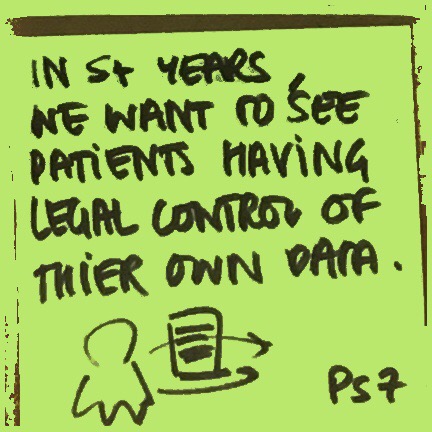 IN 5+ YEARS
WE WANT TO SEE
PATiENTS HAViNG
LEGAL CONTROL OF
THiER OWN DATA.
Ps7